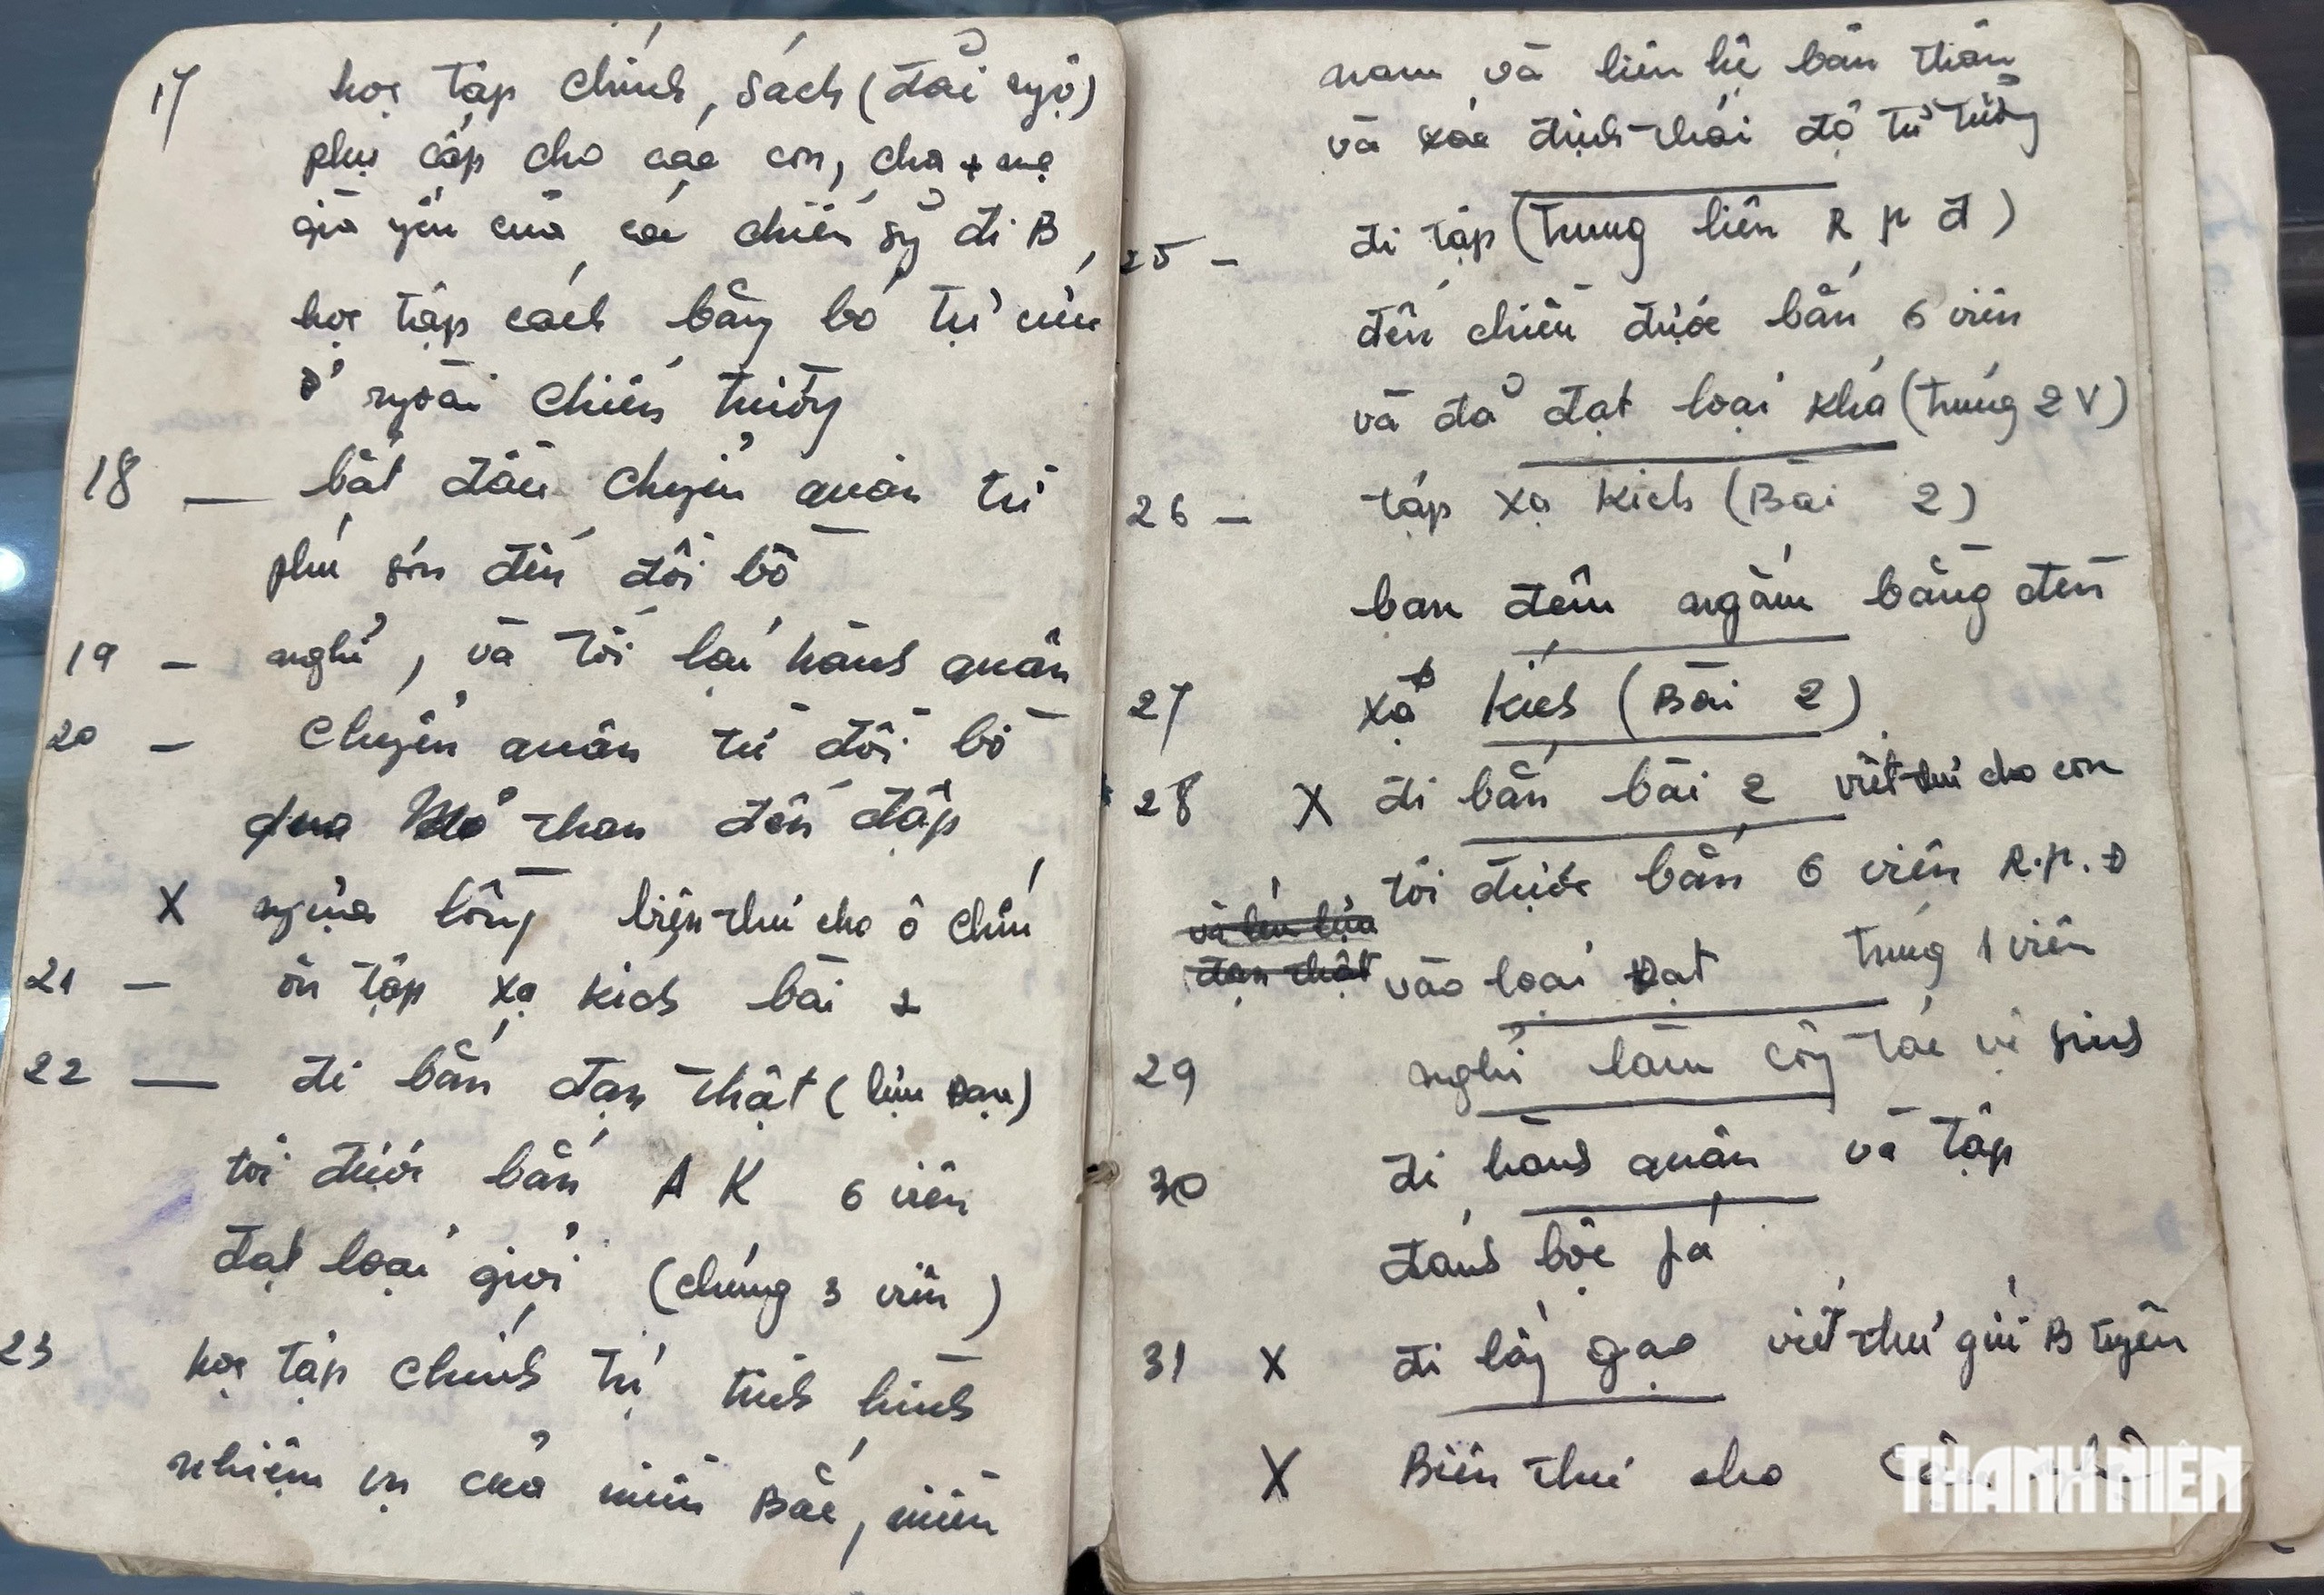 17 học tập chính, sách (đãi ngộ)
phụ cấp cho các con, cha + mẹ
già yếu của các chiến sỹ đi B,
học tập cách băng bó tự cứu
ở ngoài chiến trường
18 — bắt đầu chuyển quân từ
phú sơn đến đồi bò
19 — nghỉ, và tối lại hành quân
20 — Chuyển quân từ đồi bò
qua Mỏ than đến đập
X ngựa lồng biên thư cho ô Chín
21 — ôn tập xạ kích bài 2
22 — đi bắn đạn thật (lựu Đạn)
tôi được bắn AK 6 viên
đạt loại giỏi (chúng 3 viên)
23 học tập chính trị tình hình
nhiệm vụ của miền Bắc, miền
nam và liên hệ bản thân
và xác định thái độ tư tưởng
25 — đi tập (trung liên R p đ)
đến chiều được bắn 6 viên
và đả đạt loại khá (trúng 2 V)
26 — tập xạ kích (Bài 2)
ban đêm ngắm bằng đèn
27 xạ kích (Bài 2)
28 X đi bắn bài 2 viết thư cho con
tôi được bắn 6 viên R.p.Đ
vào loại Đạt trúng 1 viên
29 nghỉ làm công tác vệ sinh
30 đi hành quân và tập
đánh bộc phá
31 X đi lấy gạo viết thư gửi B tuyên
X Biên thư cho
THANH NIÊN